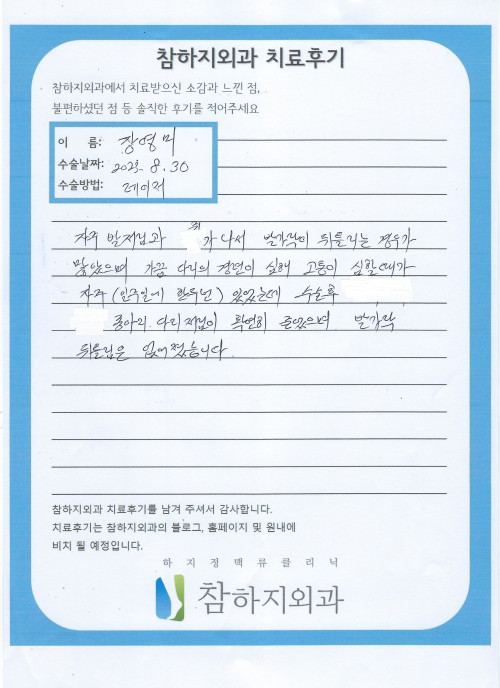 참하지외과 치료후기
참하지외과에서 치료받으신 소감과 느낀 점,
불편하셨던 점 등 솔직한 후기를 적어주세요
이 름: 장영미
수술날짜: 2023. 8. 30
수술방법: 레이저
자주 발저림과 쥐가 나서 발가락이 뒤틀리는 경우가
많았으며 가끔 다리의 경련이 심해 고통이 심할때가
자주 (일주일에 한두번) 있었는데 수술후
종아리. 다리저림이 확연히 줄었으며 발가락
뒤틀림은 없어졌습니다.
참하지외과 치료후기를 남겨 주셔서 감사합니다.
치료후기는 참하지외과의 블로그, 홈페이지 및 원내에
비치 될 예정입니다.
하지정맥류클리닉
참하지외과